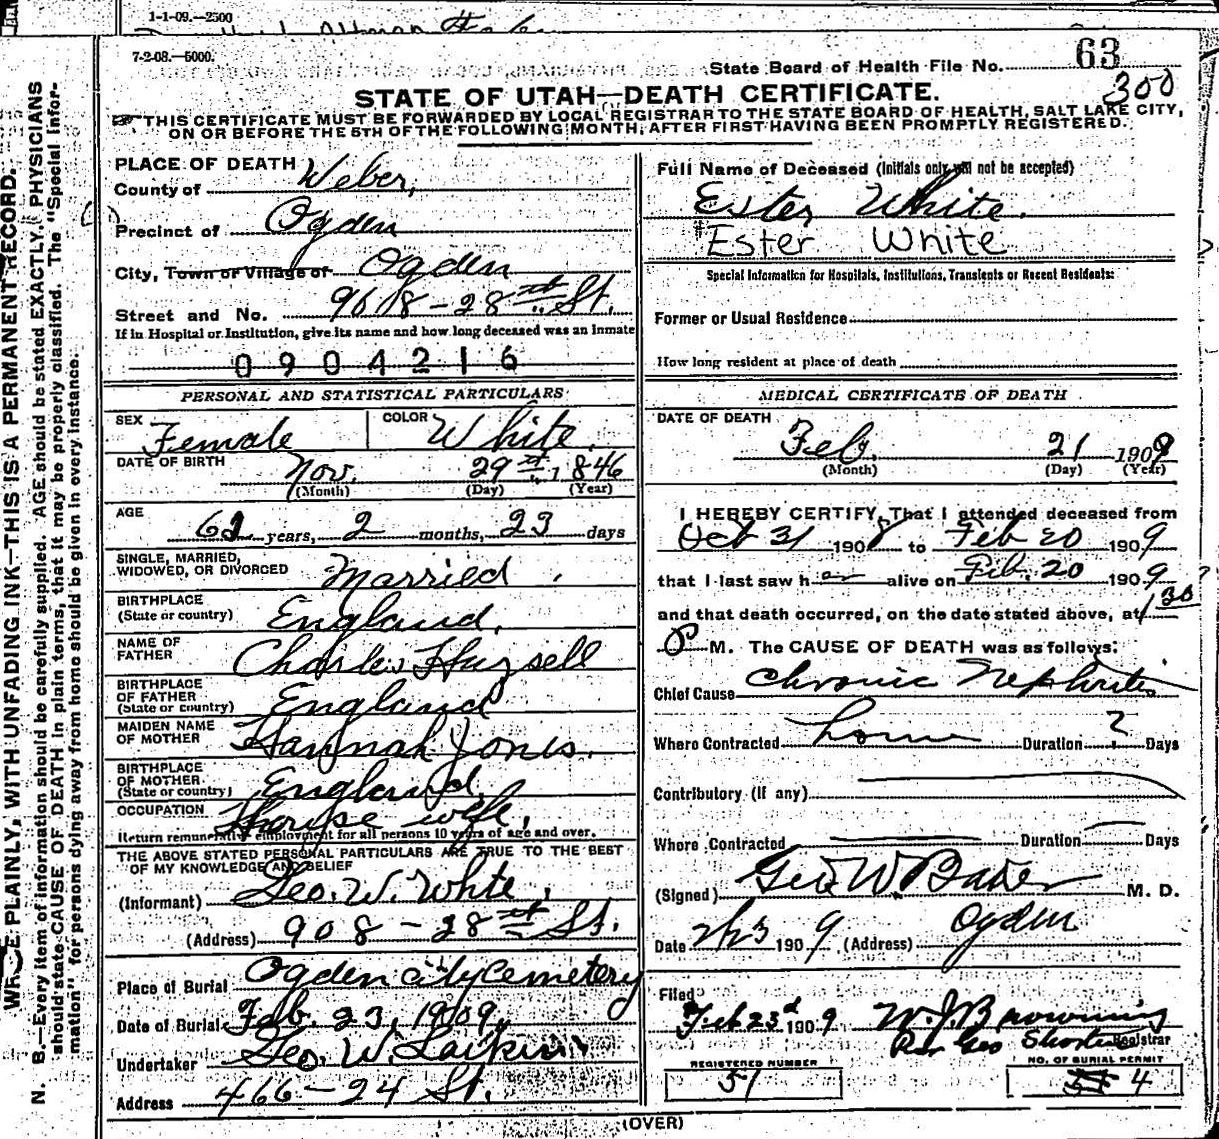 1-1-09.—2500
7-2-08.—5000.
State Board of Health File No. 63
300
STATE OF UTAH—DEATH CERTIFICATE.
THIS CERTIFICATE MUST BE FORWARDED BY LOCAL REGISTRAR TO THE STATE BOARD OF HEALTH, SALT LAKE CITY,
ON OR BEFORE THE 5TH OF THE FOLLOWING MONTH, AFTER FIRST HAVING BEEN PROMPTLY REGISTERED.
WRITE PLAINLY, WITH UNFADING INK—THIS IS A PERMANENT RECORD.
N. B.—Every item of information should be carefully supplied. AGE should be stated EXACTLY. PHYSICIANS
should state CAUSE OF DEATH in plain terms, that it may be properly classified. The "Special Infor-
mation" for persons dying away from home should be given in every instance.
PLACE OF DEATH
County of Weber,
Precinct of Ogden
City, Town or Village of Ogden
Street and No. 908-28th St.
If in Hospital or Institution, give its name and how long deceased was an inmate
0904216
PERSONAL AND STATISTICAL PARTICULARS
SEX Female COLOR White.
DATE OF BIRTH Nov. 29th, 1846
(Month) (Day) (Year)
AGE 62 years, 2 months, 23 days
SINGLE, MARRIED,
WIDOWED, OR DIVORCED Married.
BIRTHPLACE
(State or country) England.
NAME OF
FATHER Charles
BIRTHPLACE
OF FATHER
(State or country) England
MAIDEN NAME
OF MOTHER Hannah Jones.
BIRTHPLACE
OF MOTHER
(State or country) England.
OCCUPATION House wife,
Return remunerative employment for all persons 10 years of age and over.
THE ABOVE STATED PERSONAL PARTICULARS ARE TRUE TO THE BEST
OF MY KNOWLEDGE AND BELIEF
(Informant) Geo. W. White,
(Address) 908-28th St.
Place of Burial Ogden City Cemetery
Date of Burial Feb. 23, 1909,
Undertaker Geo. W. Larkin
Address 466-24 St.
Full Name of Deceased (Initials only will not be accepted)
Ester White.
Ester White
Special Information for Hospitals, Institutions, Transients or Recent Residents:
Former or Usual Residence
How long resident at place of death
MEDICAL CERTIFICATE OF DEATH
DATE OF DEATH
Feb. 21 1909
(Month) (Day) (Year)
I HEREBY CERTIFY, That I attended deceased from
Oct 31 1908 to Feb 20 1909
that I last saw her alive on Feb. 20 1909
and that death occurred, on the date stated above, at 1 30
P M. The CAUSE OF DEATH was as follows:
Chief Cause Chronic Nephritis
Where Contracted home Duration ? Days
Contributory (If any)
Where Contracted Duration Days
(Signed) Geo W. Baker M. D.
Date 2/23 1909 (Address) Ogden
Filed
Feb 23d 1909. W. J. Browning
Per Geo Registrar
REGISTERED NUMBER
51
NO. OF BURIAL PERMIT
4
(OVER)